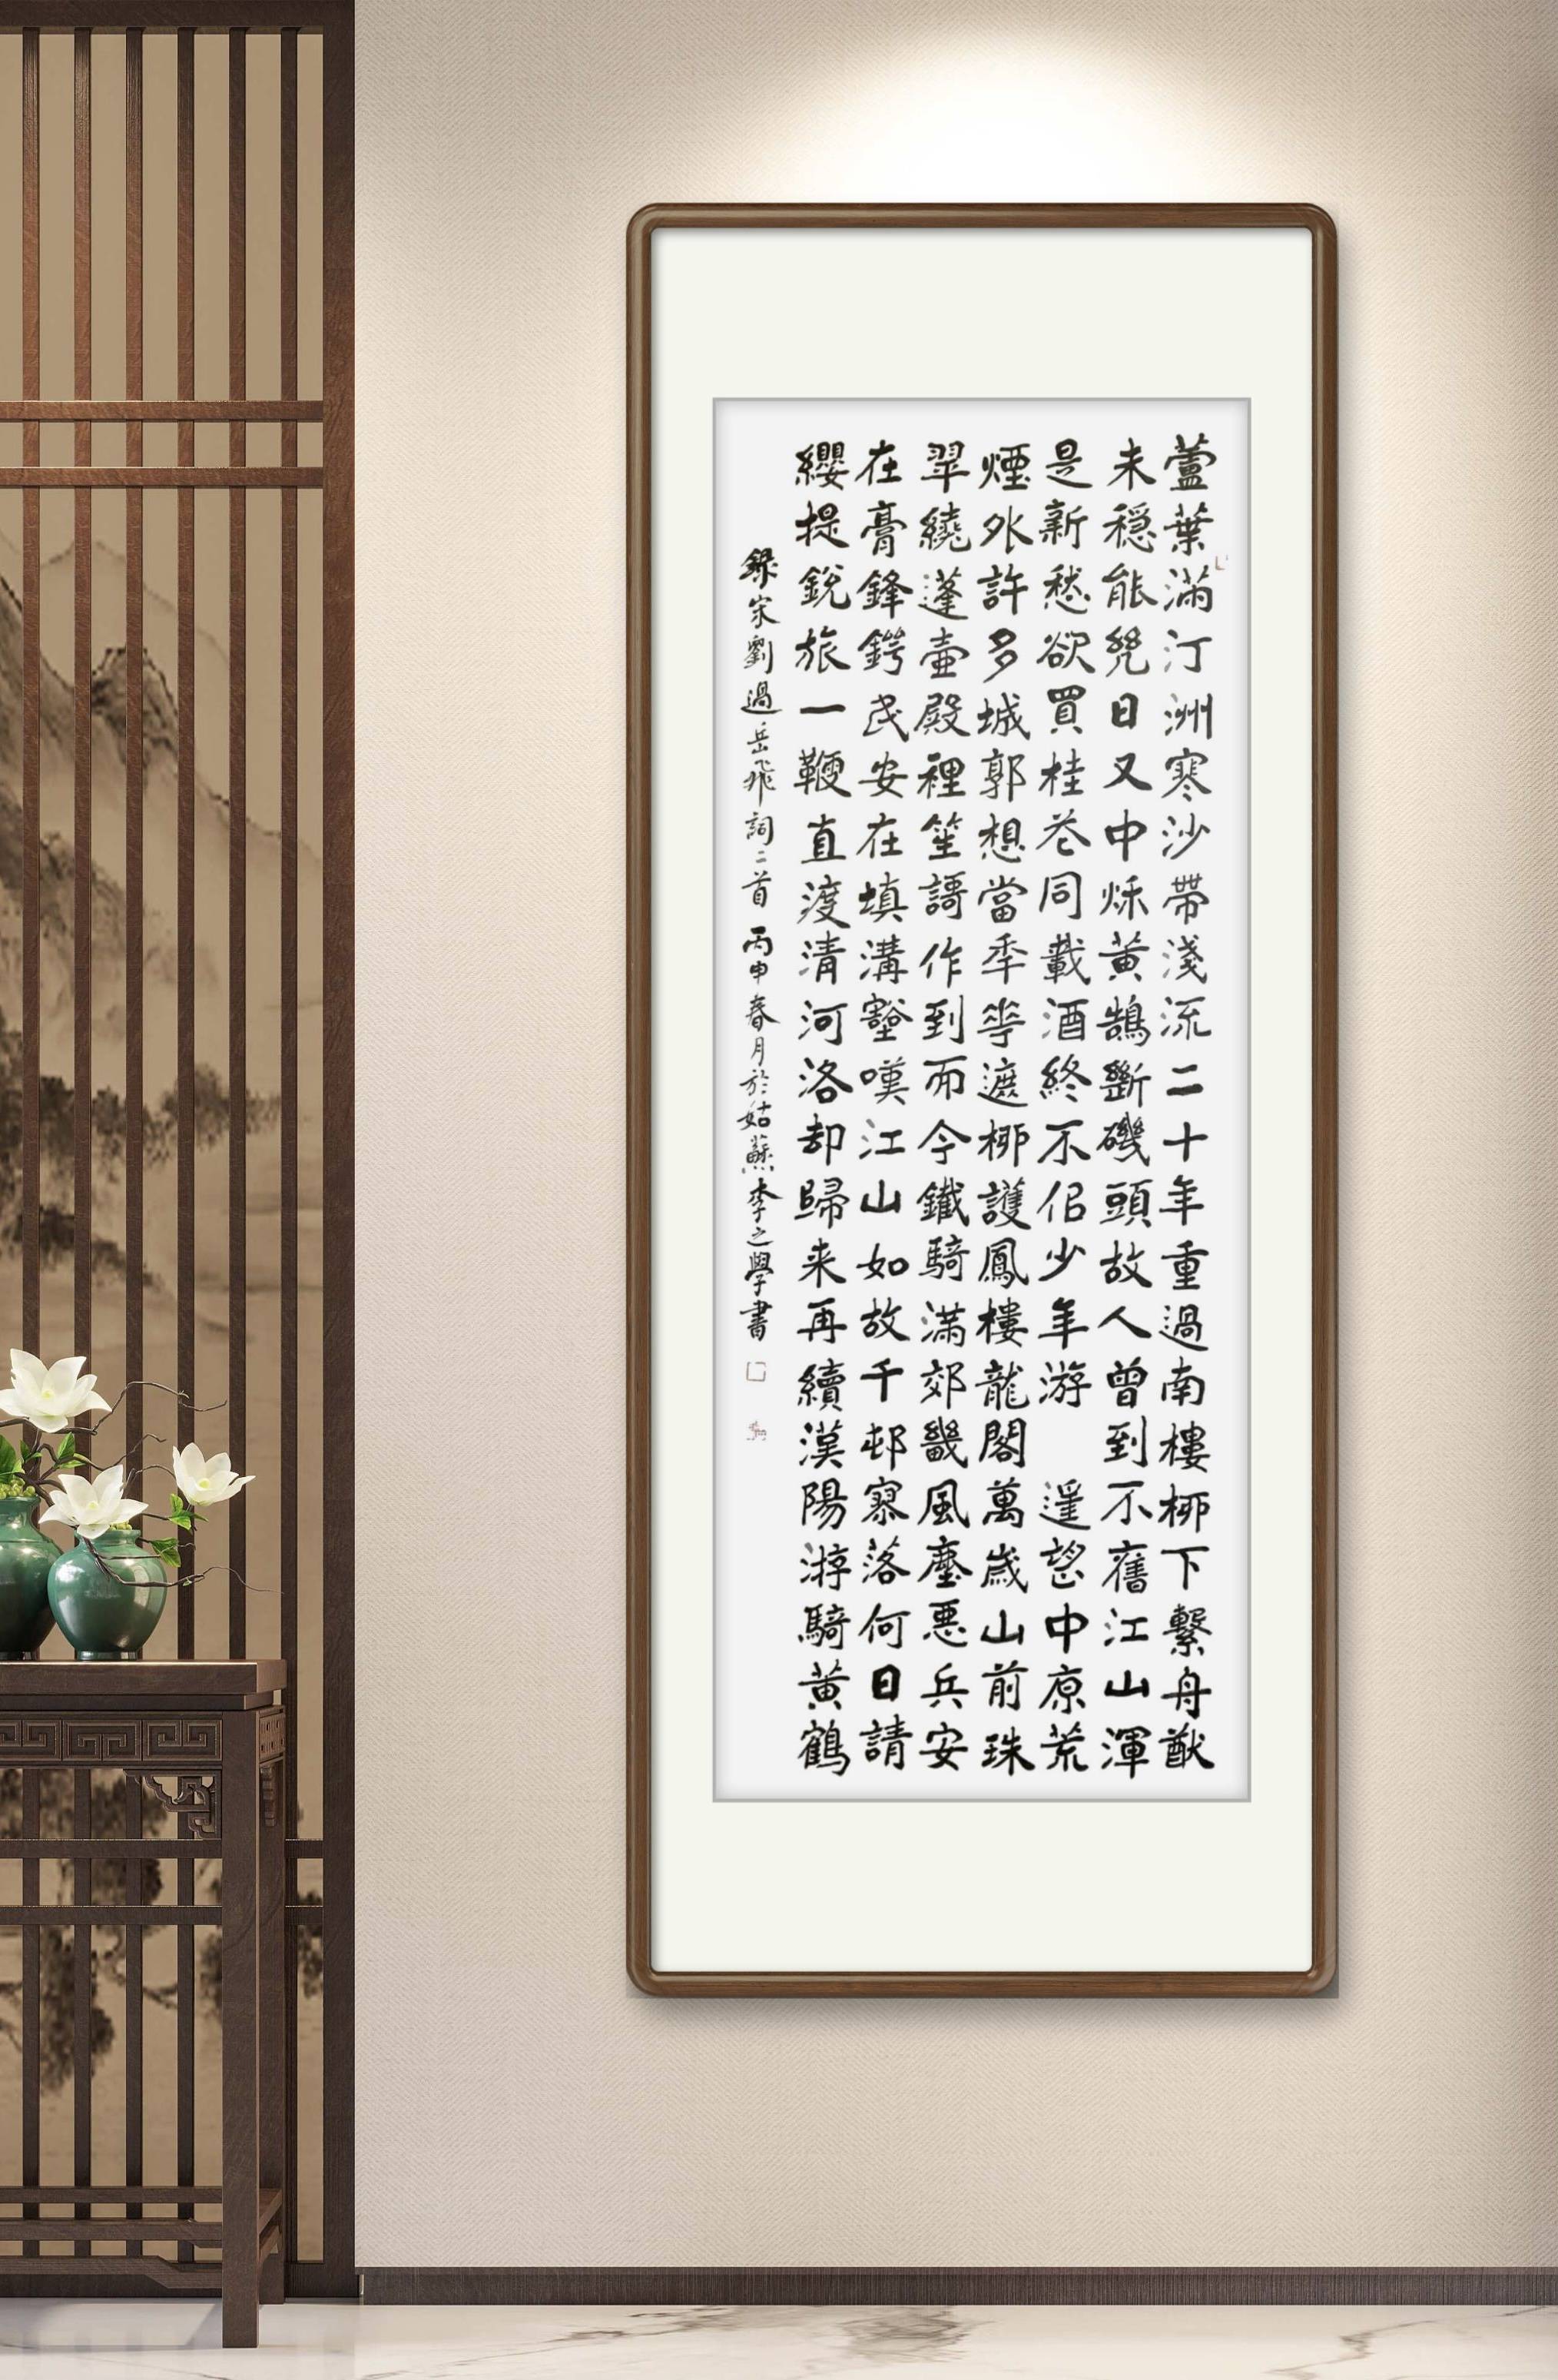 蘆葉滿汀洲寒沙帶淺流二十年重過南樓柳下繫舟猷
未穏能幾日又中烁黄鵠斷磯頭故人曾到不舊江山渾
是新愁欲買桂花同載酒終不佀少年游 遥望中原荒
煙外許多城郭想當年華遮柳護鳳樓龍閣萬歲山前珠
翠繞蓬壷殿裡笙謌作到而今鐵騎滿郊畿風塵惡兵安
在膏鋒鍔民安在填溝壑嘆江山如故千邨寥落何日請
纓提銳旅一鞭直渡清河洛却歸来再續漢陽游騎黄鶴
録宋劉過岳飛詞二首 丙申春月於姑蘇李之學書